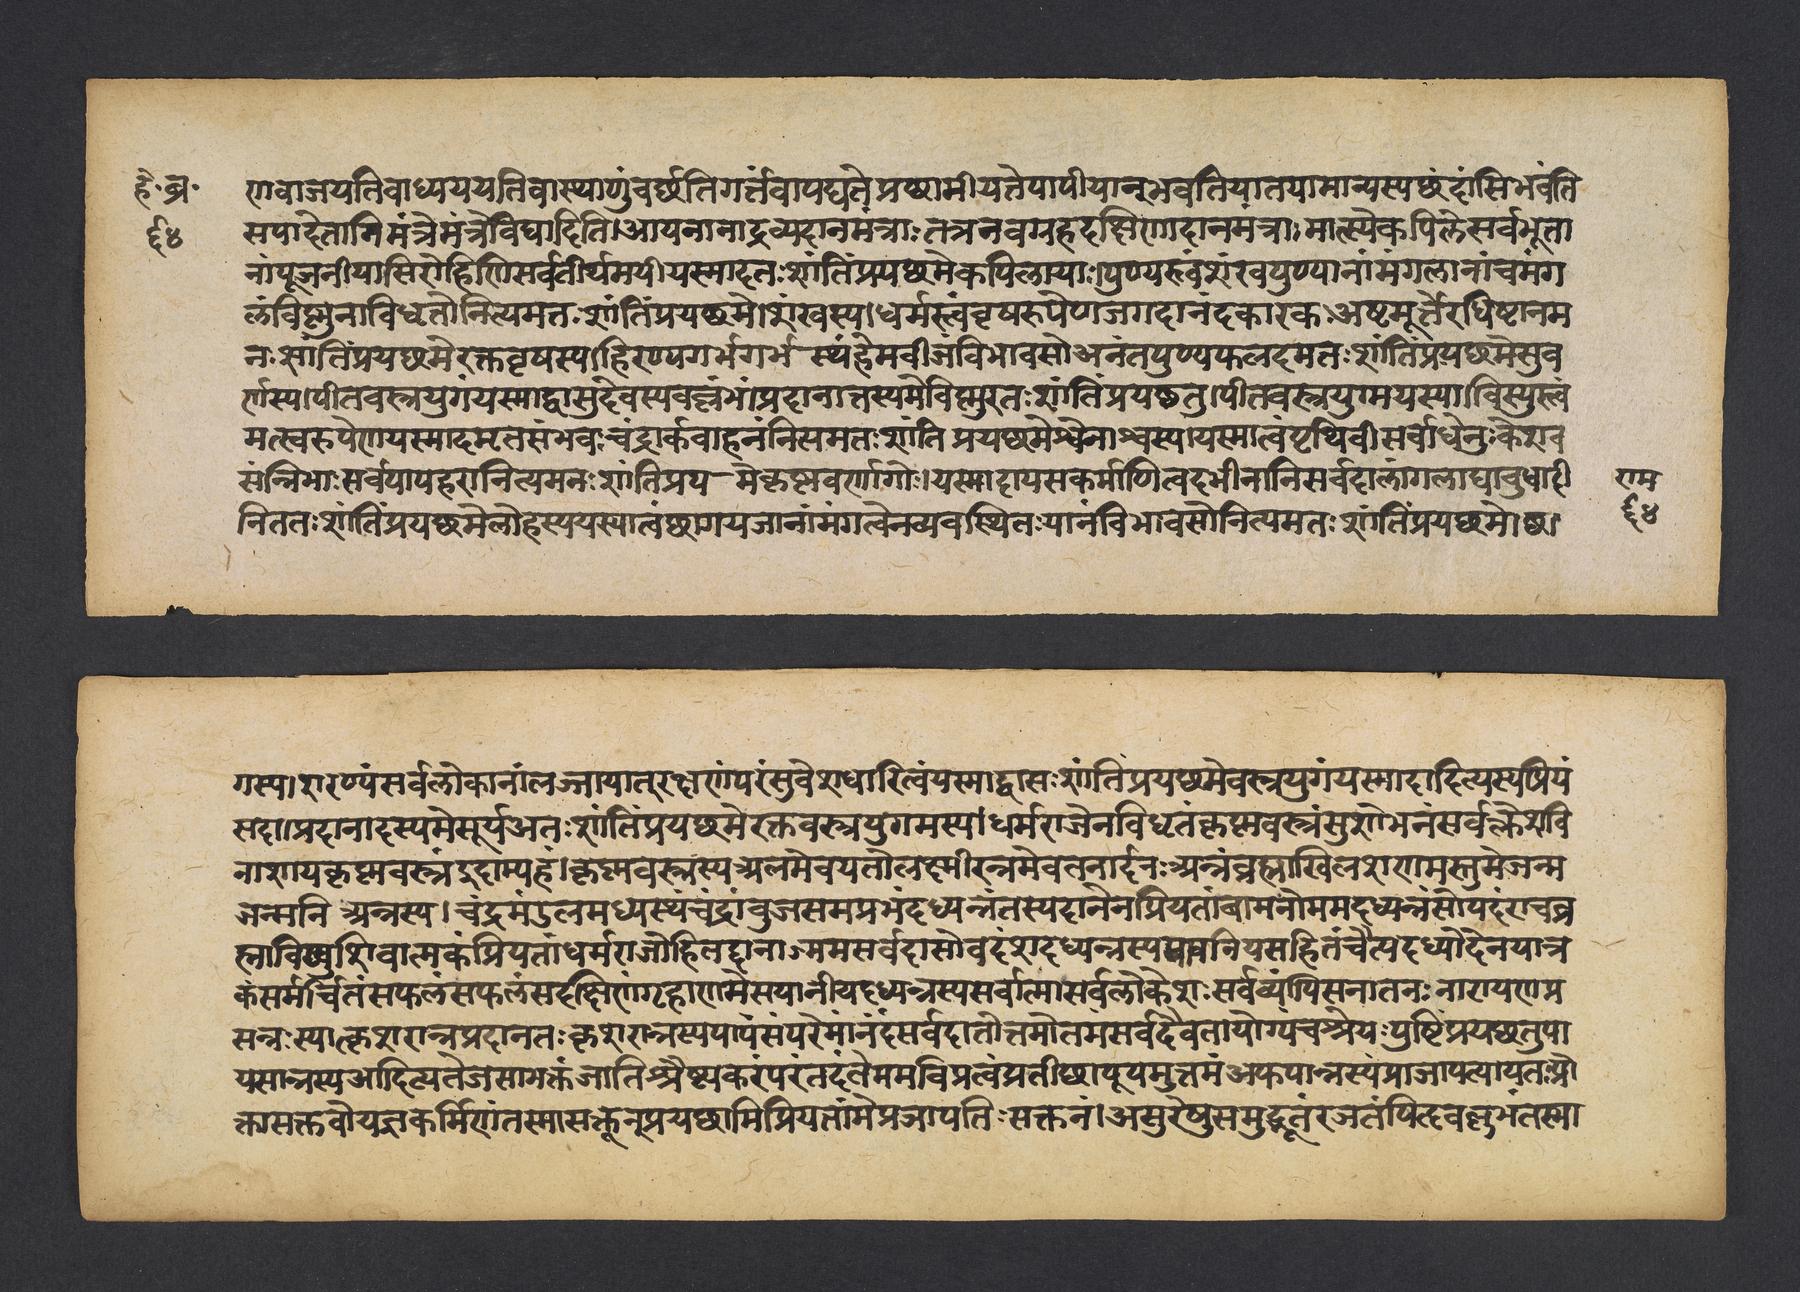 हे॰व्र॰
६४
णवाजयतिवाध्यययतिवास्याणुंवर्छतिगर्त्तंवापपद्यतेप्रच्छामीयतेपापीयानूभवतियातयामान्यस्यछंदांसिभवंति
सपादेतामिमंत्रेमंत्रेविद्यादिति।आयनानाद्रव्यदानमंत्राः तत्रनवग्रहदक्षिणादानमंत्राः मात्स्येकपिलेसर्वभूता
नांपूजनीयासिरोहिणिसर्वतीर्थमयीयस्मादतः शांतिंप्रयछमेकपिलाया।पुण्यस्त्वंशंखपुण्यानांमंगलानांचमंग
लंविष्णुनाविधृतोनित्यमतः शांतिंप्रयछमे।शंखस्य।धर्मस्त्वंवृषरूपेणजगदानंदकारकः अष्टमूर्त्तेरधिष्टानम
नः शांतिंप्रयछमेरक्तवृषस्य।हिरण्यगर्भगर्भ स्थंहेमबीजंविभावसोअनंतपुण्यफलदमतः शांतिंप्रयछमेसुव
र्णस्य।पीतवस्त्रयुगंयस्माद्वासुदेवस्यवल्लभं।प्रदानात्तस्यमेविष्णुरतः शांतिंप्रयछतु।पीतवस्त्रयुग्मयस्या।विस्युस्त्वं
मत्स्वरूपेणयस्मादमृतसंभवः चंद्रार्कवाहनंनिसमतः शांति प्रयछमेश्वेनाश्वस्य।यस्मात्वंपृथिवीसर्वाधेनुः केशव
संन्निभाः सर्वपापहरानित्यमनः शांतिप्रय मेकृष्णवर्णागोः।यस्मादायसकर्माणित्वदभीनानिसर्वदालांगलाद्यावुधादी
निततः शांतिंप्रयछमेलोहस्ययस्यात्वंछागयजानांमंगत्वेनव्यवस्थितः यानंविभावसोनित्यमतः शांतिंप्रयछमे।छा
राम
६४
गस्य।शरण्यंसर्वलोकानांलज्जायातुरक्षणंपरंसुवेशधारित्वंयस्माद्वासः शांतिप्रयछमेवस्त्रयुगंयस्मादादित्यस्यप्रियं
सदा।प्रदानादस्यमेसूर्यअतः शांतिंप्रयछमेरक्तवस्त्रयुगमस्य।धर्मराजेनविधृतंकृष्णवस्त्रंसुशोभनंसर्वक्लेशवि
नाशायकृष्णवस्त्रंदुदाम्यहं।कृष्णवस्त्रस्यअलमेवयतोलक्ष्मीरन्नमेवतनार्दनः अन्नंव्रह्माखिलशरणमस्तुमेजन्म
जन्मनि अन्नस्य। चंद्रमंडलमध्यस्थंचंद्रांवुजसमप्रभंदध्यन्नंतस्यदानेनप्रियतांबामनोममदध्यन्नंसोपदंशचव्र
ह्माविष्णुशिवात्मकंप्रियतांधर्मराजोहितद्दानाज्ममसर्वदासोवदंशदध्यन्नस्यपापनियसहितंचैत्यदध्योदेनयान्न
कंसर्मर्चितंसफलंसफलंसदक्षिणंगृहाणमेसपानीयदध्यन्नस्यसर्वात्मासर्वलोकेशः सर्वव्यापिसनातनः नारायणप्र
सन्नः स्यात्कृशरान्नप्रदानतः कृशरान्नस्यपापंसंपरेमांनंदंसर्वदातोत्तमोतमंसर्वदेवतायोग्यंचश्रेयः पुष्टिंप्रयछतुपा
यसान्नस्यआदित्यतेजसाभक्तंजातिश्रैष्ट्यकरंपरंतदंतेममविप्रत्वंप्रतीछापूपमुत्तमंअफपान्नस्यप्राजापत्यायतःप्रो
क्तासक्तवोयज्ञकर्मिणांतस्मासक्तूनूप्रयछामिप्रियतांमेप्रजापतिः सक्तनं।असुरेषुसमुद्भूतंरजतंपितृवल्लभंतस्मा